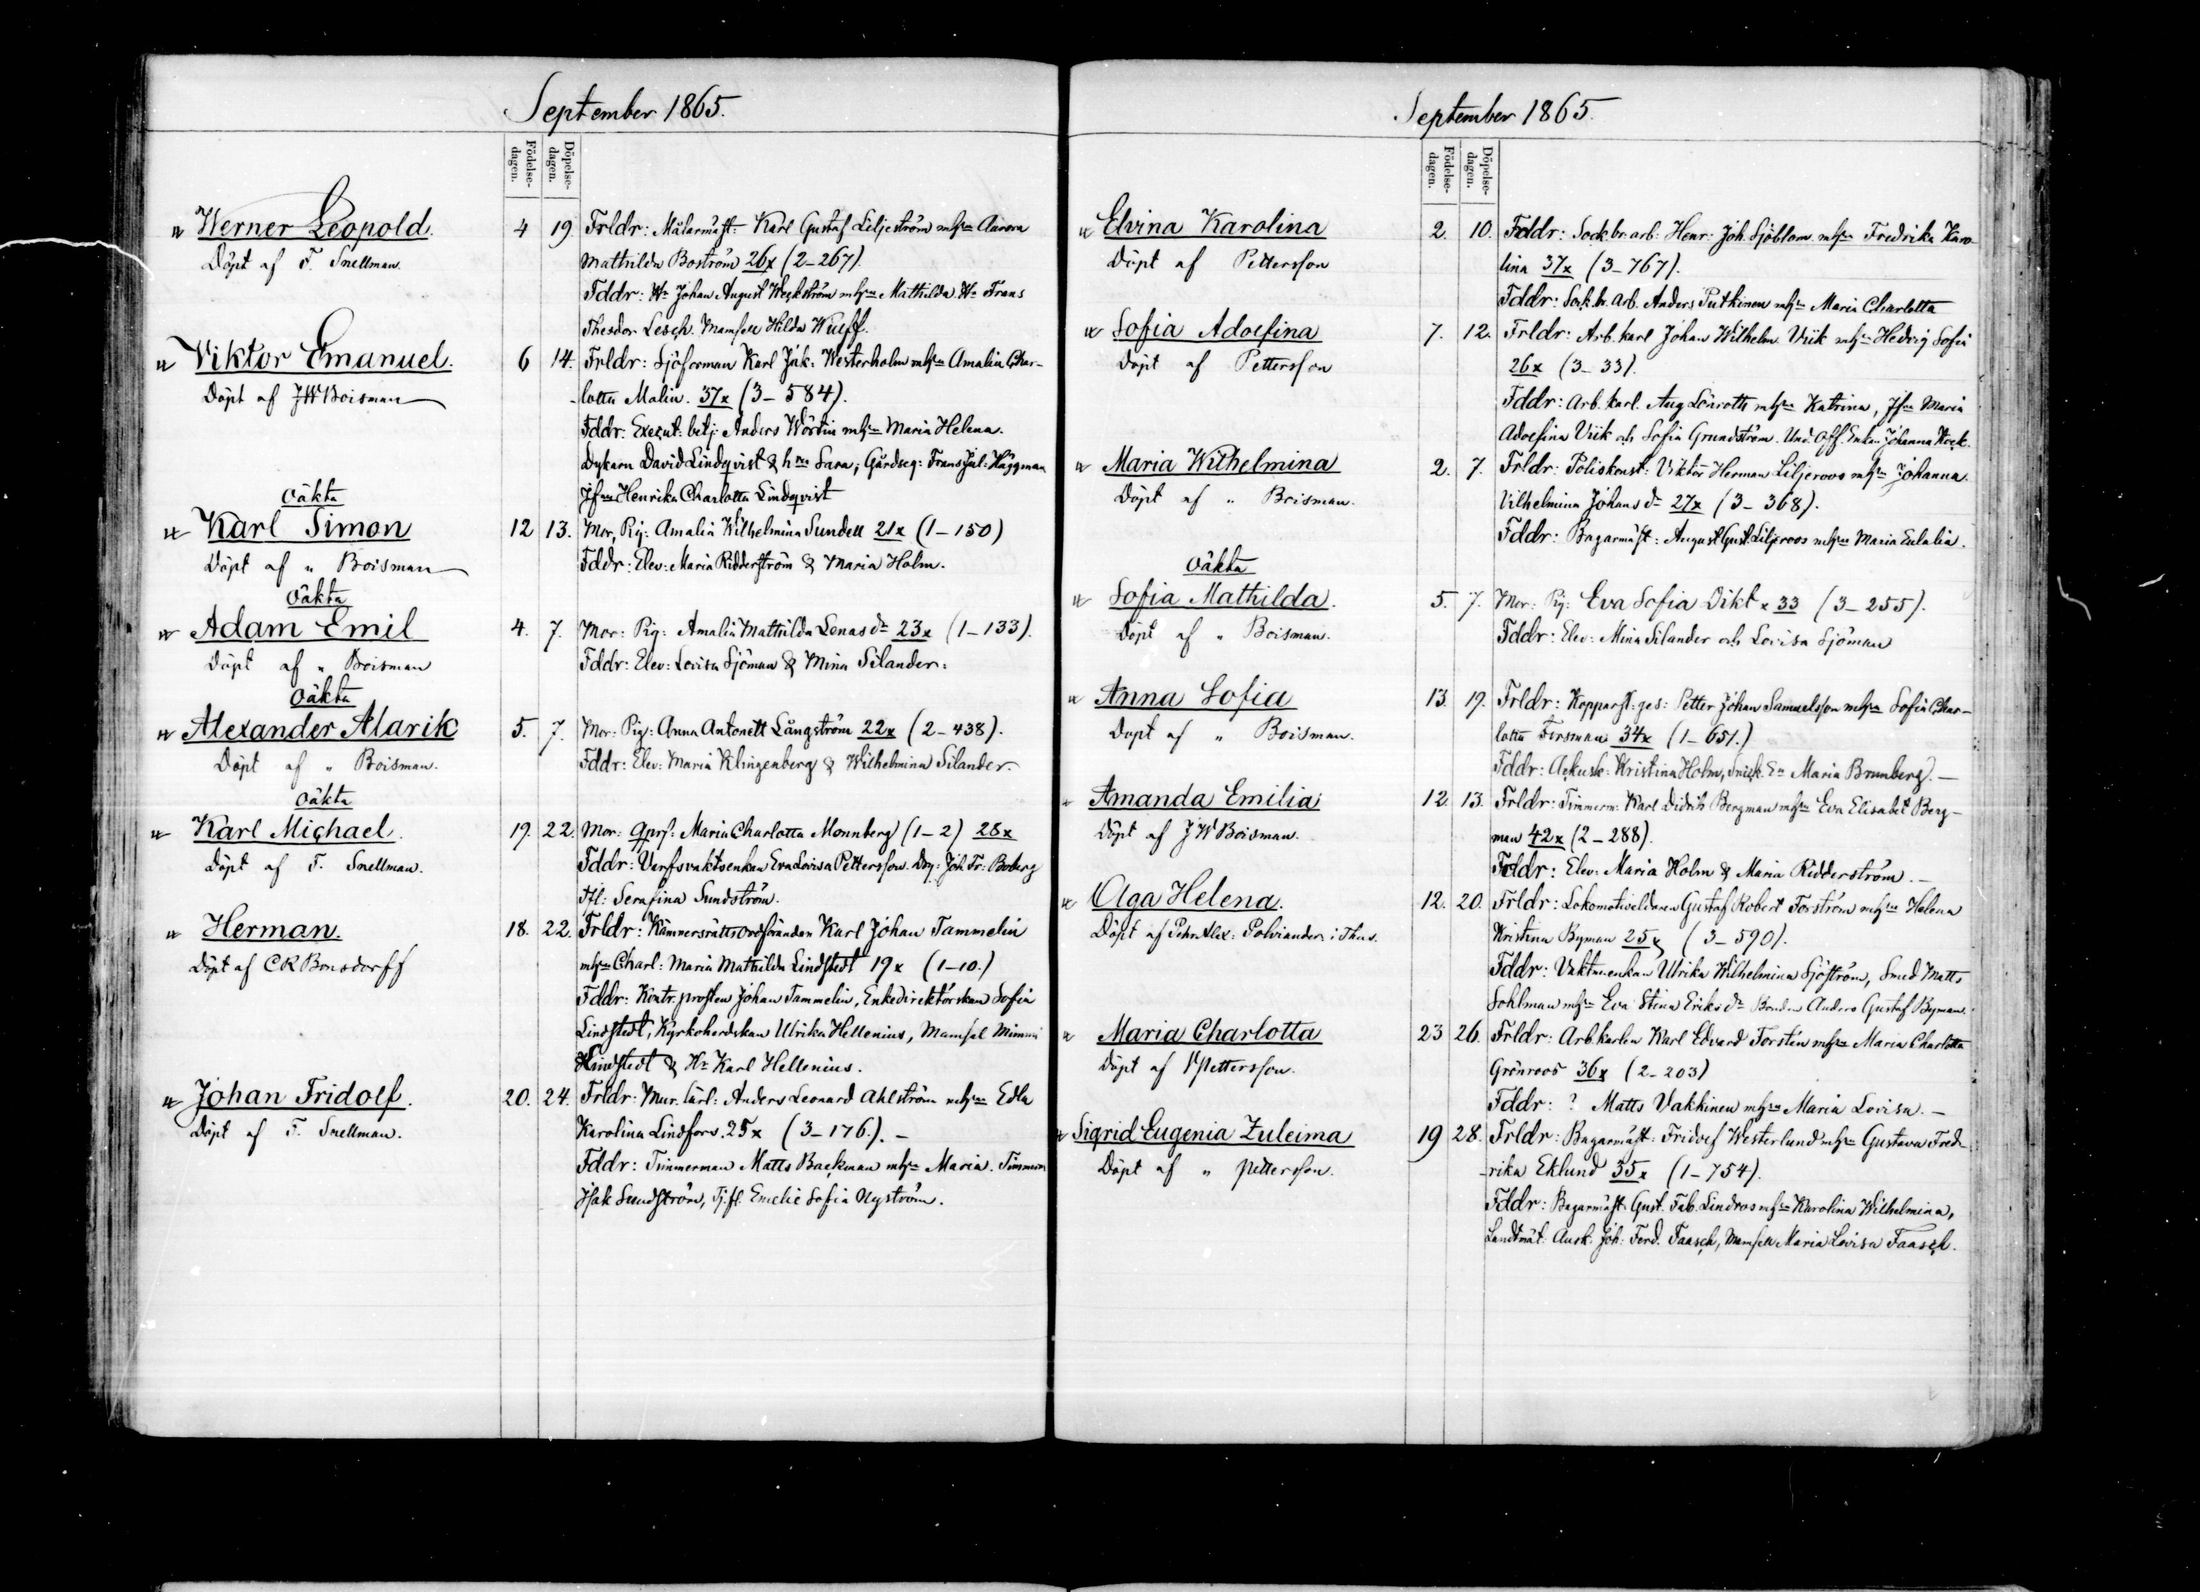 September 1865.
Födelse-dagen.
Döpelse-dagen.
Werner Leopold.
Döpt af F. Snellman.
4 19 Frldr: Målarmäst: Karl Gustaf Liljeström mhu Aurora
Mathilda Boström 26x (2-267).
Fddr: Hr Johan August Weckström mhu Mathilda. Hr Frans
Theodor Lesch. Mamsell Hilda Wulff.
Viktor Emanuel.
Döpt af JW Boisman
6 14. Frldr: Sjöforman Karl Jak: Westerholm mhu Amalia Char-
lotta Malin. 37x (3-584).
Fddr: Execut: betj: Anders Wörtin mhu Maria Helena.
Dykarn David Lindqvist & hru Sara; Gårdseg: Frans Jul: Häggman
Jfru Henrika Charlotta Lindqvist
Oäkta
Karl Simon
Döpt af " Boisman
12 13. Mor, Pig: Amalia Wilhelmina Sundell 21x (1-150)
Fddr: Elev: Maria Ridderström & Maria Holm.
Oäkta
Adam Emil
Döpt af " Boisman
4. 7. Mor: Pig: Amalia Mathilda Lenasdr 23x (1-133).
Fddr: Elev: Lovisa Sjöman & Mina Silander.
Oäkta
Alexander Alarik
Döpt af " Boisman.
5. 7. Mor: Pig: Anna Antonett Långström 22x (2-438).
Fddr: Elev: Maria Klingenberg & Wilhelmina Silander.
Oäkta
Karl Michael.
Döpt af F. Snellman.
19. 22. Mor: Maria Charlotta Monnberg (1-2) 28x
Fddr: Varfsvaktsenkan Eva Lovisa Pettersson. Joh. Fr: Boberg
Serafina Sundström.
Herman.
Döpt af CR Bonsdorff
18. 22. Frldr: Kämnersrättsordföranden Karl Johan Tammelin
mhu Charl: Maria Mathilda Lindstedt 19x (1-10.)
Fddr: Kontr. prosten Johan Tammelin, Enkedirektörskan Sofia
Lindstedt, Kyrkoherdskan Ulrika Hellenius, Mamsel Mimmi
Lindstedt & Hr Karl Hellenius.
Johan Fridolf.
Döpt af F. Snellman.
20. 24. Frldr: Mur. lärl: Anders Leonard Ahlström mhu Edla
Karolina Lindfors. 25x (3-176). -
Fddr: Timmerman Matts Backman mhu Maria. Timmerm
Isak Sundström, Tj.fl. Emelie Sofia Nyström.
September 1865.
Födelse-dagen.
Döpelse-dagen.
Elvina Karolina
Döpt af Pettersson
2. 10. Fddr: Sock.br.arb: Henr: Joh. Sjöblom mhu Fredrika Karo-
lina 37x (3-767).
Fddr: Sock.br. arb. Anders Putkinen mhu Maria Charlotta
Sofia Adolfina
Döpt af Pettersson
7. 12. Frldr: Arb. karl Johan Wilhelm Viik mhu Hedvig Sofia
26x (3-33).
Fddr: Arb. karl. Aug Lönroth mhu Katrina, Jfru Maria
Adolfina Viik och Sofia Grundström. Und. Off. Enkan Johanna
Maria Wilhelmina
Döpt af " Boisman.
2. 7. Frldr: Poliskonst: Viktor Herman Liljeroos mhu Johanna
Vilhelmina Johansdr 27x (3-368).
Fddr: Bagarmäst: August Gust. Liljeroos mhu Maria Eulalia.
Oäkta
Sofia Mathilda.
Döpt af " Boisman.
5. 7. Mor: Pig: Eva Sofia Dikt x 33 (3-255).
Fddr: Elev: Mina Silander och Lovisa Sjöman
Anna Sofia
Döpt af " Boisman.
13. 19. Frldr: Kopparsl: ges: Petter Johan Samuelsson mhu Sofia Char-
lotta Forsman 34x (1-651.)
Fddr: Ackusk: Kristina Holm, Snick. En Maria Brunberg. -
Amanda Emilia
Döpt af J W Boisman.
12. 13. Frldr: Timmerm: Karl Didrik Bergman mhu Eva Elisabet Berg-
man 42x (2-288).
Fddr: Elev: Maria Holm & Maria Ridderström. -
Olga Helena.
Döpt af Pehr Alex: Polviander i Thus.
12. 20. Frldr: Lokomotiveldaren Gustaf Robert Forström mhu Helena
Kristina Byman 25x (3-590).
Fddr: Vaktm.enkan Ulrika Wilhelmina Sjöström, Smed Matts
Sohlman mhu Eva Stina Eriksdr Bonden Anders Gustaf Byman.
Maria Charlotta
Döpt af Pettersson.
23 26. Frldr: Arb.karlen Karl Edvard Forstén mhu Maria Charlotta
Grönroos 36x (2-203)
Fddr: ? Matts Vakkinen mhu Maria Lovisa. -
Sigrid Eugenia Zuleima
Döpt af " Pettersson.
19 28. Frldr: Bagarmäst: Fridolf Westerlund mhu Gustava Fred-
rika Eklund 35x (1-754).
Fddr: Bagarmäst. Gust. Fab. Lindroos mhu Karolina Wilhelmina,
Landtmät. Ausk. Joh: Ferd. Taasch, Mamsell Maria Lovisa Taasch.